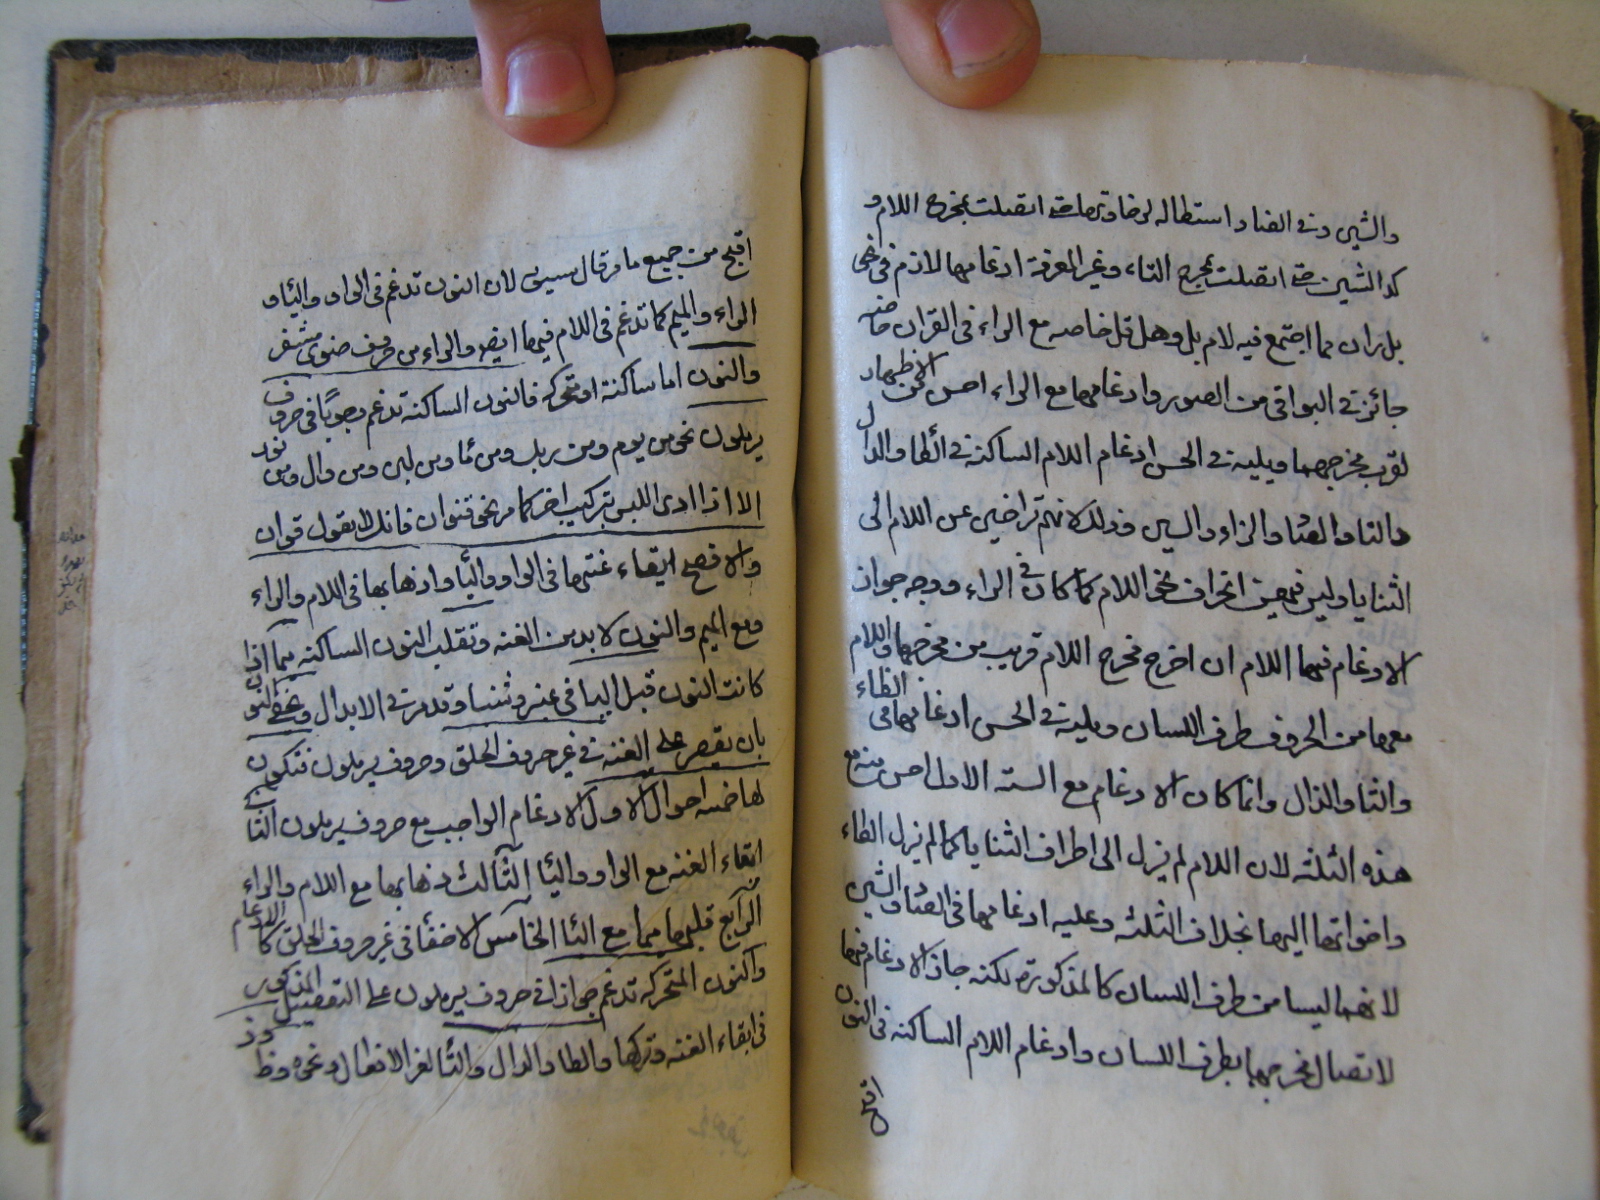 والشين وفي الضاد استطالة لرخاوتها حتى اتصلت بمخرج اللام و
كذا الشين حتى اتصلت بمخرج التاء وغير المعرفة ادغامها لازم في نحو
بل ران مما اجتمع فيه لام بل وهل قل خاصه مع الراء في القران خاصه
جائز في البواقي من الصور وادغامها مع الراء احسن من الاظهار
لقرب مخرجهما ويليه في الحسن ادغام اللام الساكنة في الطا والدال
والتا والصاد والزاء والسين وذلك لانهم تراخين عن اللام الى
الثنايا وليس فيهن انحراف نحو اللام كما كان في الراء ووجه جواز
الادغام فيها اللام ان اخرج مخرج اللام قريب من مخرجها واللام
معها من الحروف طرف اللسان ويليه في الحسن ادغامها في الظاء
والثا والذال وانما كان الادغام مع الستة الاول احسن منه مع
هذه الثلثه لان اللام لم ينزل الى اطراف الثنايا كما لم ينزل الطاء
واخواتها اليها بخلاف الثلثه وعليه ادغامها في الضاد والشين
لانهما ليسا من طرف اللسان كالمذكورة لكنه جاز الادغام فيها
لاتصال مخرجهما بطرف اللسان وادغام اللام الساكنه في النون
اقبح
اقبح من جميع ما مر قال سيبويه لان النون تدغم في الواو والياو
الراء والميم كما تدغم في اللام فيها ايضا والراء من حروف ضوى مشفر
والنون اما ساكنة او متحركة فالنون الساكنة تدغم وجوبا في حروف
يرملون نحو من يوم ومن ربك ومن ما ومن لبن ومن وال ومن نور
الا اذا ادى اللبس بتركيب اخر كما مر نحو قنوان فانك لا تقول قوان
والافصح ابقاء غنتها في الواو والياو اذهابها في اللام والراء
ومع الميم والنون لابد من الغنه وتقلب النون الساكنه ميما اذا
كانت النون قبل البا في عنبر وشنبا وقد مر في الابدال وتخفى النون
بان يقصر على الغنه في غير حروف الحلق وحروف يرملون فتكون
لها خمسه احوال الاول الادغام الواجب مع حروف يرملون الثاني
ابقاء الغنه مع الواو واليا الثالث ذهابها مع اللام والراء
الرابع قلبها ميما مع البا الخامس الاخفا في غير حروف الحلق كا الادغام
والنون المتحركه تدغم جوازا في حروف يرملون على التفصيل المذكور
في ابقاء الغنه وتركها والطا والدال والتا لغير الافتعال ونحوه وظ